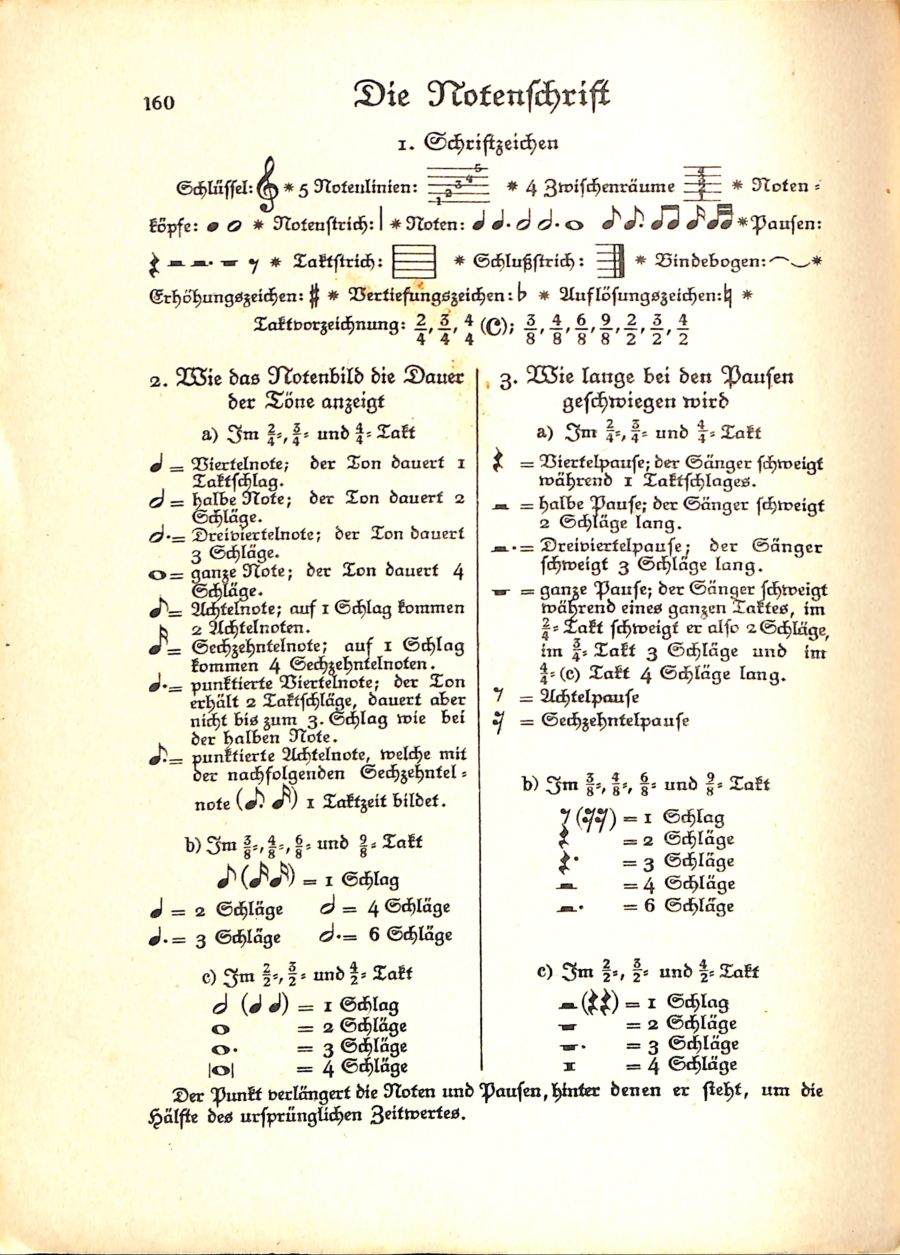 160
Die Notenschrift
1. Schriftzeichen
Schlüssel: 𝄞 * 5 Notenlinien: 1 2 3 4 5 * 4 Zwischenräume 1 2 3 4 * Noten=
köpfe: * Notenstrich: | * Noten: * Pausen:
* Taktstrich: * Schlußstrich: * Bindebogen: *
Erhöhungszeichen: ♯ * Vertiefungszeichen: ♭ * Auflösungszeichen: ♮ *
Taktvorzeichnung: 2/4, 3/4, 4/4 (C); 3/8, 4/8, 6/8, 9/8, 2/2, 3/2, 4/2
2. Wie das Notenbild die Dauer
der Töne anzeigt
a) Im 2/4=, 3/4= und 4/4= Takt
♩ = Viertelnote; der Ton dauert 1
Taktschlag.
𝅗𝅥 = halbe Note; der Ton dauert 2
Schläge.
𝅗𝅥. = Dreiviertelnote; der Ton dauert
3 Schläge.
𝅝 = ganze Note; der Ton dauert 4
Schläge.
♪ = Achtelnote; auf 1 Schlag kommen
2 Achtelnoten.
𝅘𝅥𝅯 = Sechzehntelnote; auf 1 Schlag
kommen 4 Sechzehntelnoten.
♩. = punktierte Viertelnote; der Ton
erhält 2 Taktschläge, dauert aber
nicht bis zum 3. Schlag wie bei
der halben Note.
♪. = punktierte Achtelnote, welche mit
der nachfolgenden Sechzehntel=
note (♪. 𝅘𝅥𝅯) 1 Taktzeit bildet.
b) Im 3/8=, 4/8=, 6/8= und 9/8= Takt
♪ (𝅘𝅥𝅯𝅘𝅥𝅯) = 1 Schlag
♩ = 2 Schläge 𝅗𝅥 = 4 Schläge
♩. = 3 Schläge 𝅗𝅥. = 6 Schläge
c) Im 2/2=, 3/2= und 4/2= Takt
𝅗𝅥 (♩ ♩) = 1 Schlag
𝅝 = 2 Schläge
𝅝. = 3 Schläge
|𝅝| = 4 Schläge
3. Wie lange bei den Pausen
geschwiegen wird
a) Im 2/4=, 3/4= und 4/4= Takt
𝄽 = Viertelpause; der Sänger schweigt
während 1 Taktschlages.
𝄼 = halbe Pause; der Sänger schweigt
2 Schläge lang.
𝄼. = Dreiviertelpause; der Sänger
schweigt 3 Schläge lang.
𝄻 = ganze Pause; der Sänger schweigt
während eines ganzen Taktes, im
2/4= Takt schweigt er also 2 Schläge,
im 3/4= Takt 3 Schläge und im
4/4= (C) Takt 4 Schläge lang.
𝄾 = Achtelpause
𝄿 = Sechzehntelpause
b) Im 3/8=, 4/8=, 6/8= und 9/8= Takt
𝄾 (𝄿𝄿) = 1 Schlag
𝄽 = 2 Schläge
𝄽. = 3 Schläge
𝄼 = 4 Schläge
𝄼. = 6 Schläge
c) Im 2/2=, 3/2= und 4/2= Takt
𝄼 (𝄽𝄽) = 1 Schlag
𝄻 = 2 Schläge
𝄻. = 3 Schläge
𝄺 = 4 Schläge
Der Punkt verlängert die Noten und Pausen, hinter denen er steht, um die
Hälfte des ursprünglichen Zeitwertes.